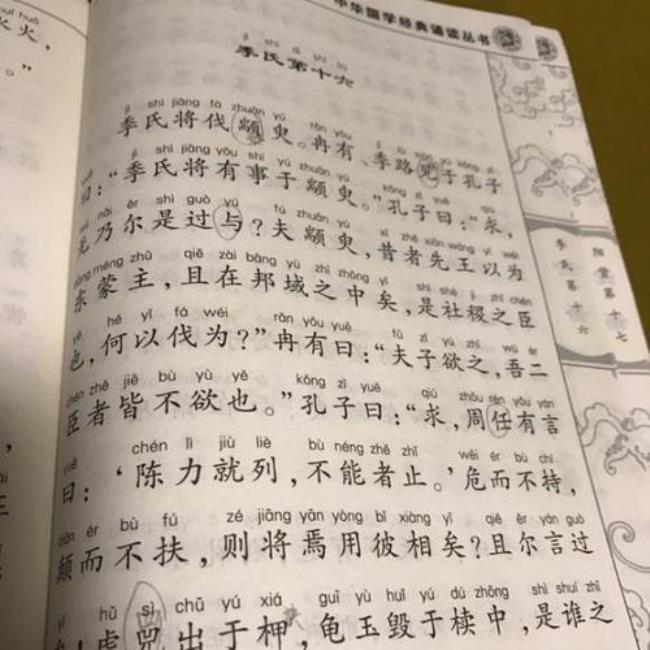 火,
。”
中华国学经典诵读丛书
季氏第十六
季氏将伐颛臾。冉有、季路见于孔子
曰:“季氏将有事于颛臾。”孔子曰:“求,
无乃尔是过与?夫颛臾,昔者先王以为
东蒙主,且在邦域之中矣,是社稷之臣
也,何以伐为?”冉有曰:“夫子欲之,吾二
臣者皆不欲也。”孔子曰:“求,周任有言
曰:‘陈力就列,不能者止。’危而不持,
颠而不扶,则将焉用彼相矣?且尔言过
虎兕出于柙,龟玉毁于椟中,是谁之
季氏第十六
阳货第十七